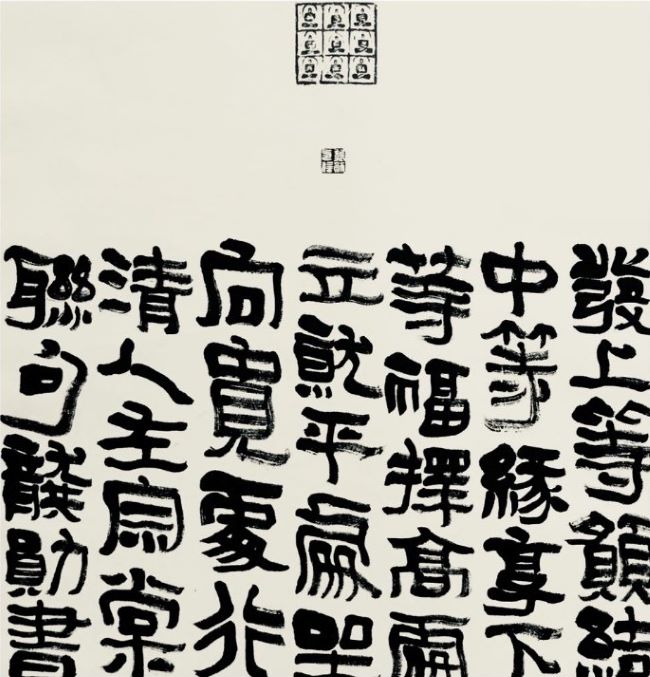 發上等願結
中等緣享下
等福擇高處
立就平處坐
向寬處行
清人左宗棠
聯句龔勛書